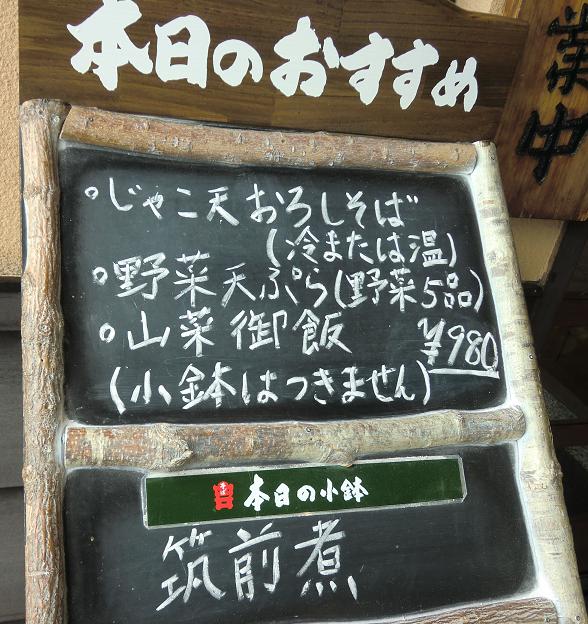 本日のおすすめ
業中
◦じゃこ天おろしそば
(冷または温)
◦野菜天ぷら(野菜5品)
◦山菜御飯 ¥980
(小鉢はつきません)
本日の小鉢
筑前煮